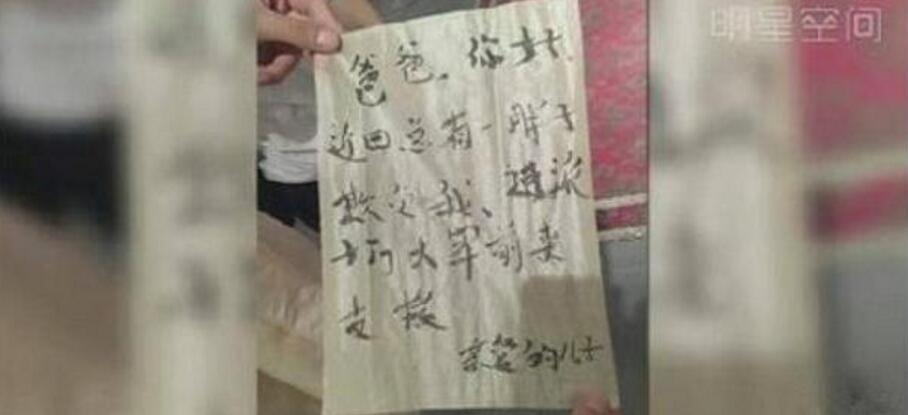 明星空间
爸爸、你好!
近日总有一胖子
欺负我、速派
十万大军前来
支援
的儿子